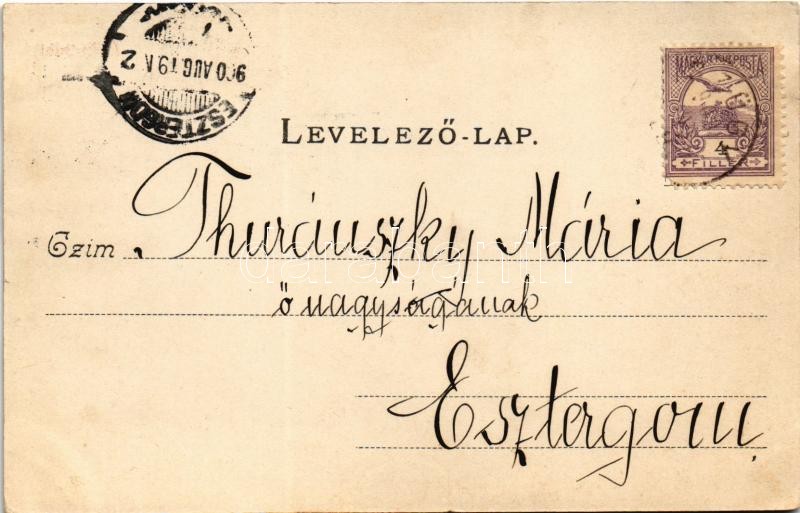 ESZTERGOM
900 AUG 19 N 2
MAGYAR KIR. POSTA
4
FILLÉR
LEVELEZŐ-LAP.
Czim
Thuránszky Mária
ő nagyságának
Esztergom
darabanth